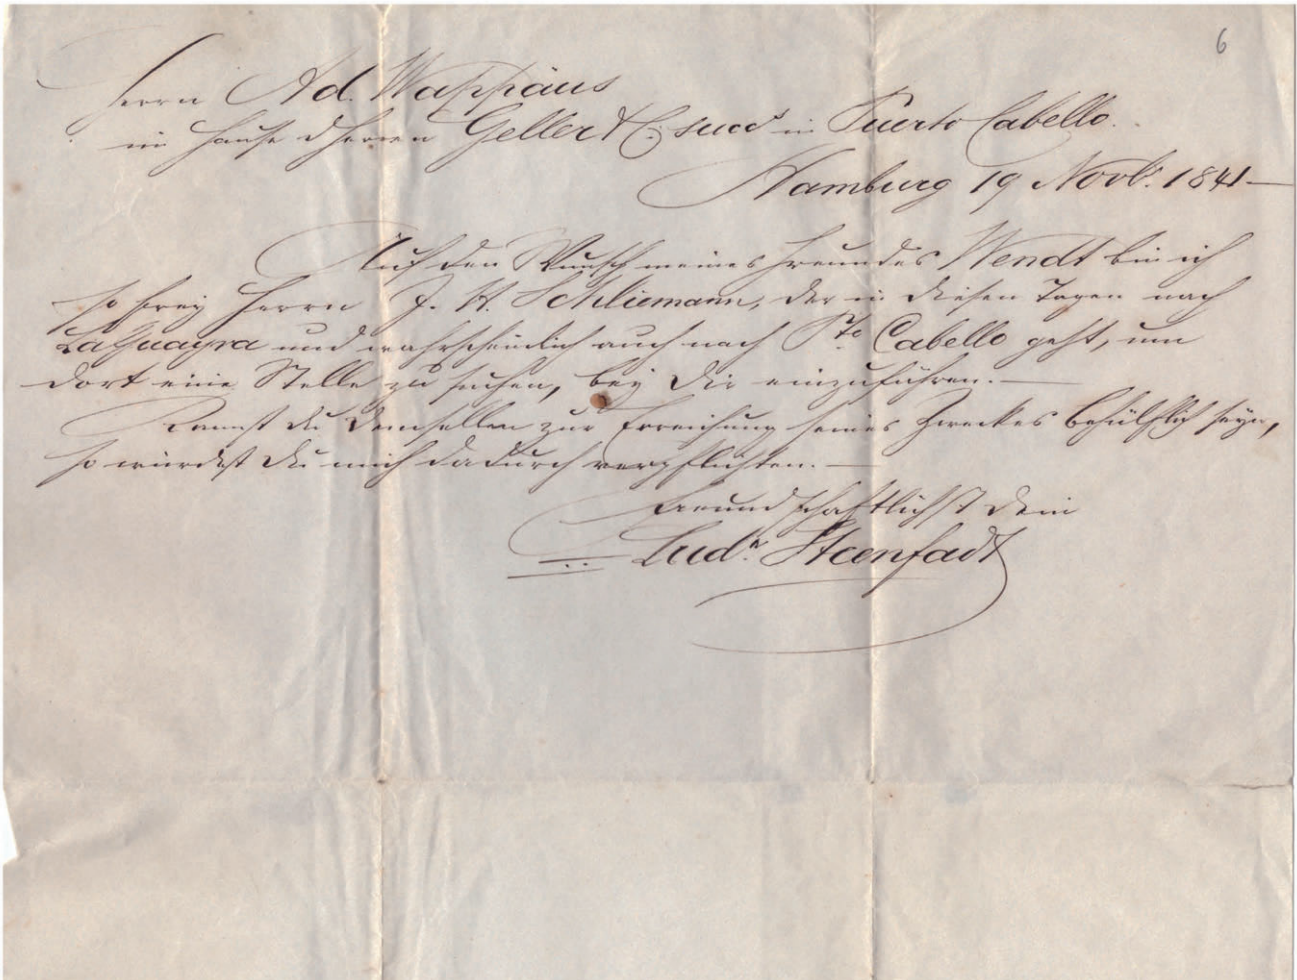 6
Herrn Ad. Wappäus
im Hause d Herren Geller & C. succs in Puerto Cabello.
Hamburg 19 Novbr. 1841
Auf den Wunsch meines Freundes Wendt bin ich
so frey Herrn J. H. Schliemann, der in diesen Tagen nach
LaGuayra und wahrscheinlich auch nach Pto Cabello geht, um
dort eine Stelle zu suchen, bey Dir einzuführen.—
Kannst Du demselben zur Erreichung seines Zweckes behülflich seyn,
so würdest Du mich dadurch verpflichten.—
Freundschaftlichst Dein